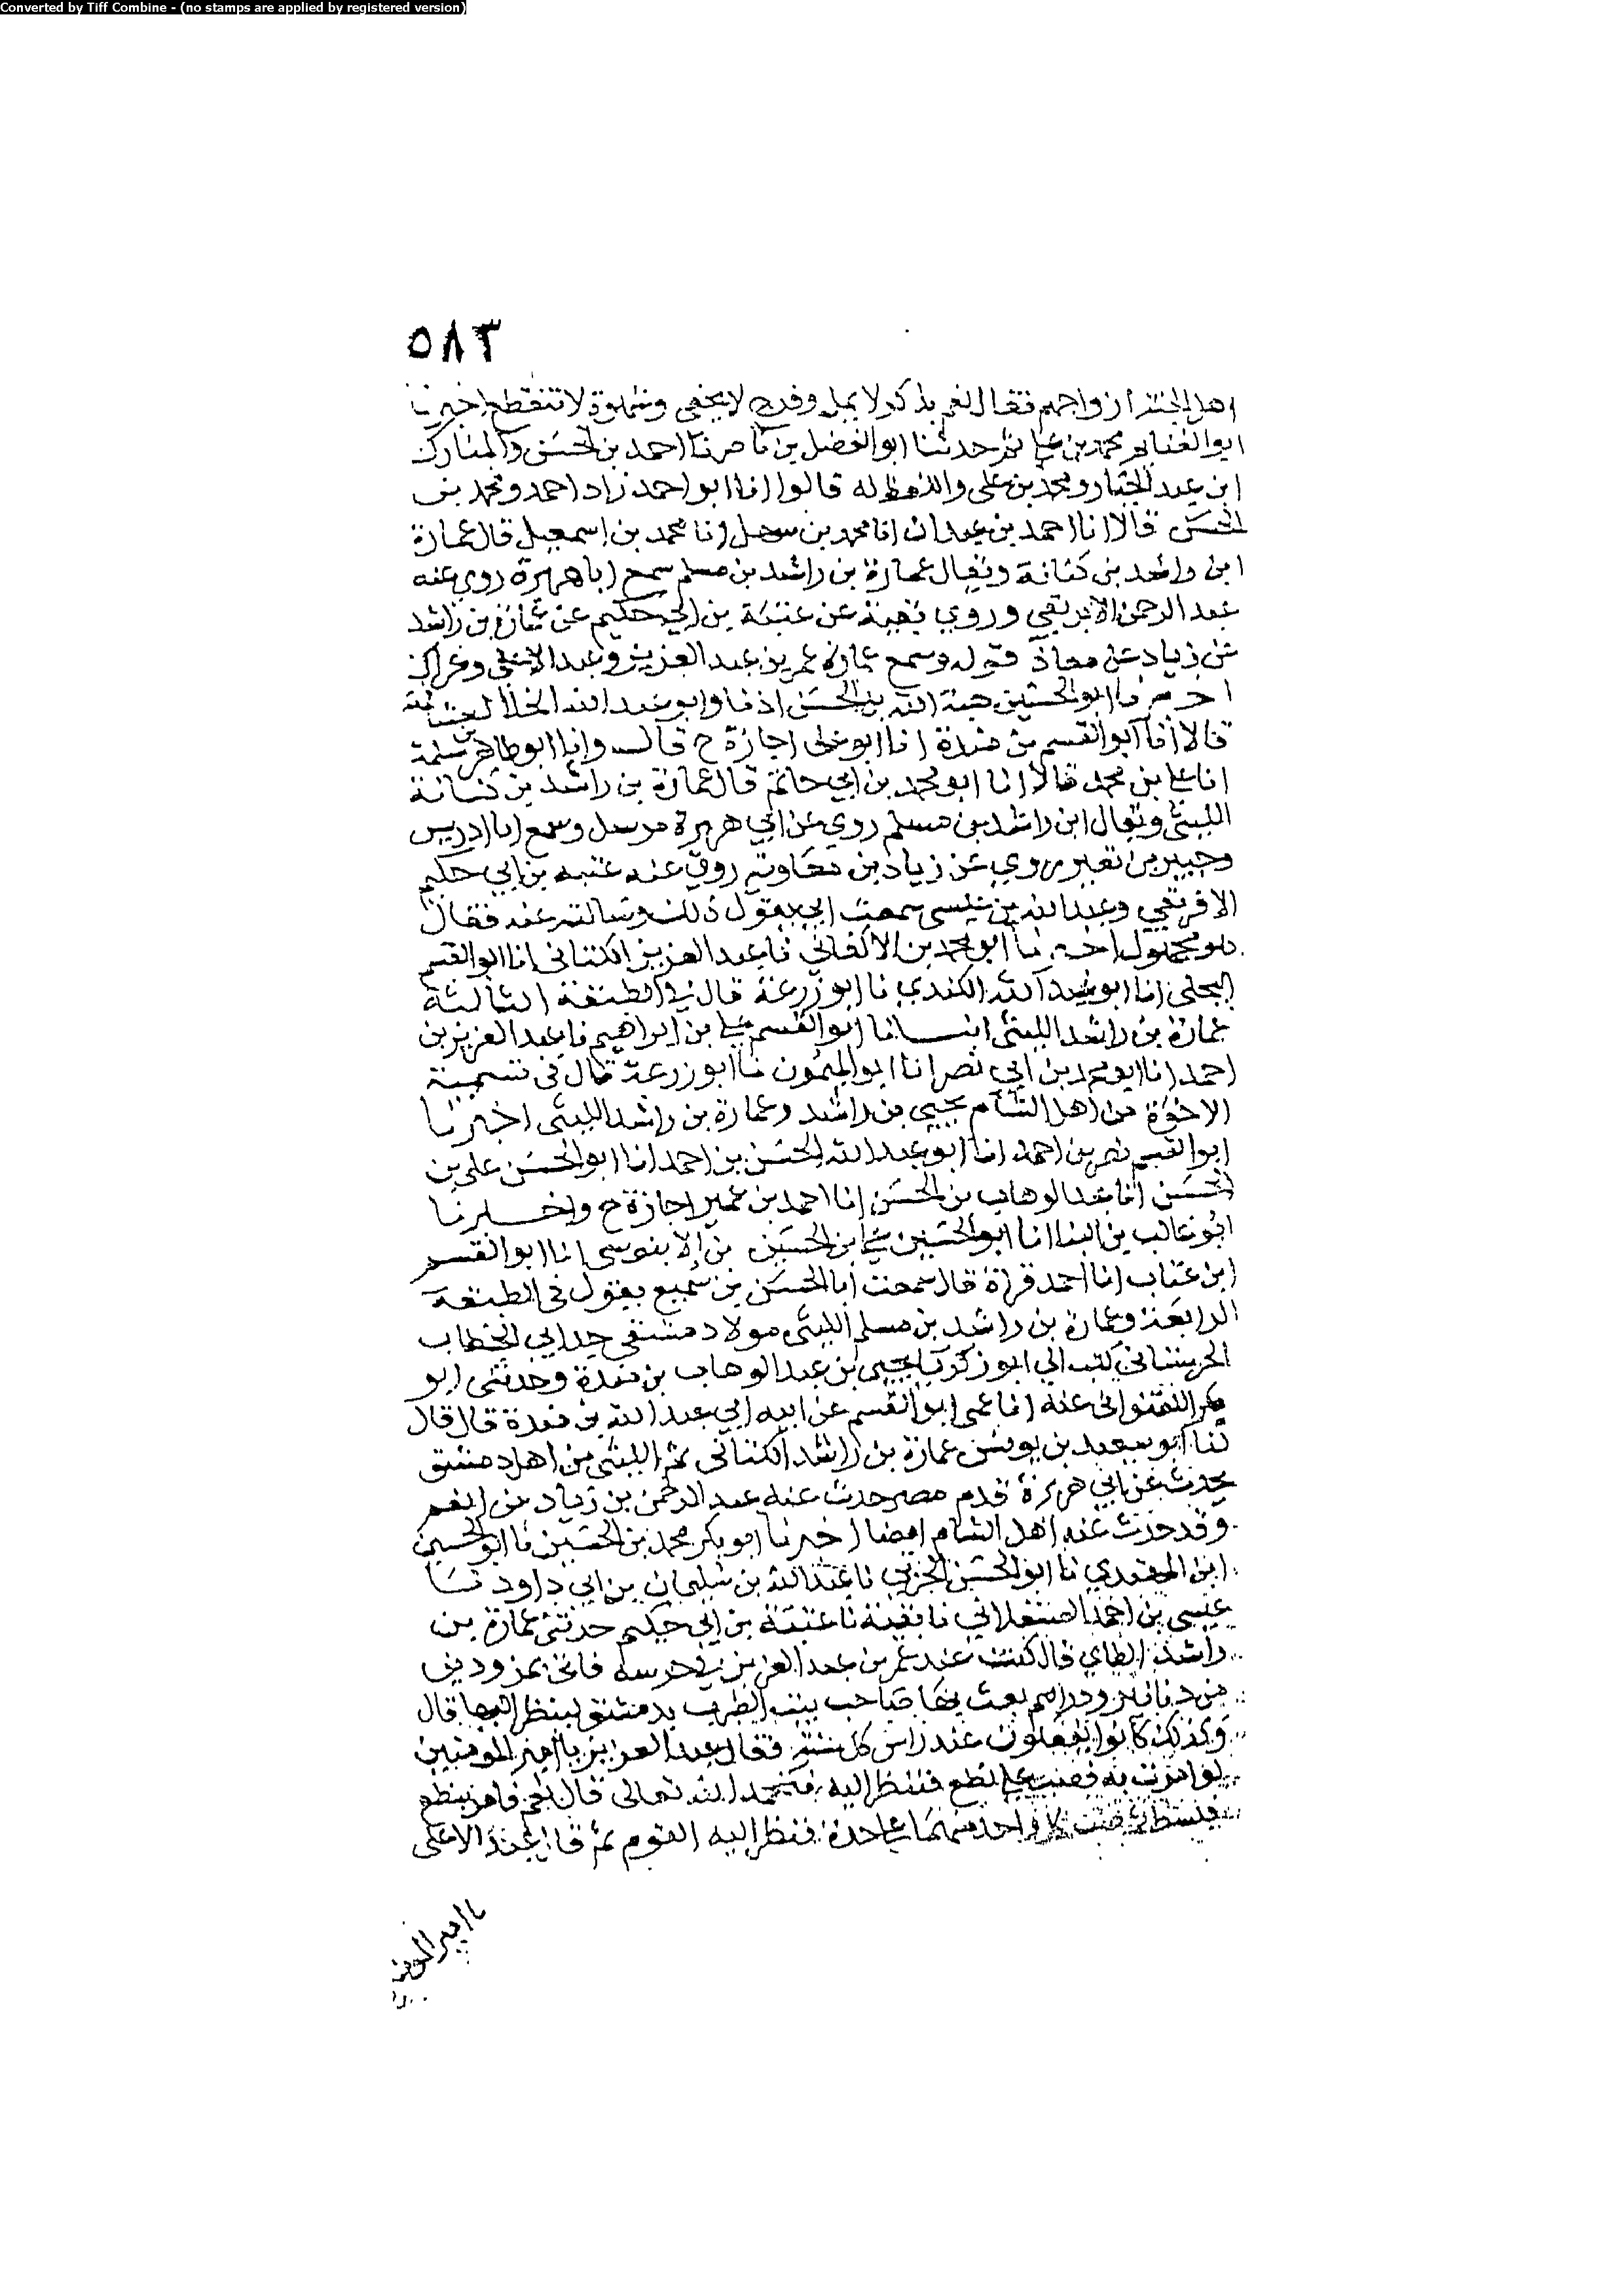 Converted by Tiff Combine - (no stamps are applied by registered version)
٥٨٣
اهل الجنة ازواجهم فقال نعم بذكر لا يمل وفرج لا يحفى وشهوة لا تنقطع اخبرنا
ابو الغنائم محمد بن علي ثم حدثنا ابو الفضل بن ناصر نا احمد بن الحسن والمبارك
ابن عبد الجبار ومحمد بن على واللفظ له قالوا انا ابو احمد زاد احمد ومحمد بن
الحسن قالا انا احمد بن عبدان انا محمد بن سهل انا محمد بن اسمعيل قال عمارة
ابن راشد بن كنانة ويقال عمارة بن راشد بن مسلم سمع ابا هريرة روي عنه
عبد الرحمن الافريقي وروي بقية عن عتبة بن ابي حكيم عن عمارة بن راشد
عن زياد عن معاذ قوله وسمع عمارة عمر بن عبد العزيز وعبد الاعلى وعراك
اخبرنا ابو الحسين هبة الله بن الحسن اذنا وابو عبد الله الخلال
قالا انا ابو القسم بن مندة انا ابو علي اجازة ح قال وانا ابو طاهر بن سلمة
انا علي بن محمد قالا انا ابو محمد بن ابي حاتم قال عمارة بن راشد بن كنانة
الليثي ويقال ابن راشد بن مسلم روي عن ابي هريرة مرسل وسمع ابا ادريس
وجبير بن نفير روي عن زياد بن معاوية روى عنه عتبة بن ابي حكيم
الافريقي وعبد الله بن عيسى سمعت ابي يقول ذلك وسالته عنه فقال
هو مجهول اخبرنا ابو محمد بن الاكفاني نا عبد العزيز الكتاني انا ابو القسم
البجلي انا ابو عبد الله الكندي نا ابو زرعة قال في الطبقة الثالثة
عمارة بن راشد الليثي انبانا ابو القسم علي بن ابراهيم نا عبد العزيز بن
احمد انا ابو محمد بن ابي نصر انا ابو الميمون نا ابو زرعة قال في تسمية
الاخوة من اهل الشام يحيى بن راشد وعمارة بن راشد الليثي اخبرنا
ابو القسم نصر بن احمد انا ابو عبد الله الحسن بن احمد انا ابو الحسن علي بن
الحسن انا عبد الوهاب بن الحسن انا احمد بن عمير اجازة ح واخبرنا
ابو غالب بن البنا انا ابو الحسين بن الابنوسي انا ابو القسم
ابن عتاب انا احمد قراة قال سمعت ابا الحسن بن سميع يقول في الطبقة
الرابعة وعمارة بن راشد بن مسلم الليثي مولا دمشقي جد ابي الخطاب
الحرستاني كتب الي ابو زكريا يحيى بن عبد الوهاب بن مندة وحدثني ابو
بكر اللفتواني عنه انا عمي ابو القسم عن ابيه ابي عبد الله بن مندة قال قال
لنا ابو سعيد بن يونس عمارة بن راشد الكناني ثم الليثي من اهل دمشق
يحدث عن ابي هريرة قدم مصر حدث عنه عبد الرحمن بن زياد بن انعم
وقد حدث عنه اهل الشام ايضا اخبرنا ابو بكر محمد بن الحسين نا ابو الحسين
ابن المهتدي نا ابو الحسن الحربي نا عبد الله بن سليمان بن ابي داود نا
عيسى بن احمد العسقلاني نا بقية نا عتبة بن ابي حكيم حدثني عمارة بن
راشد الطاي قال كنت عند عمر بن عبد العزيز في حرسه فاتى بمزودين
من دنانير ودراهم بعث بها صاحب بيت الضرب بدمشق لينظر اليها قال
وكذلك كانوا يفعلون عند راس كل سنة فقال عبد العزيز يا امير المومنين
لو امرت به فصب على نطع فننظر اليه فنحمد الله تعالى قال نعم فامر بنطع
فبسط ثم صب كل واحد منهما على حدة فنظر اليه القوم ثم قال عبد الاعلى
يا امير المومنين